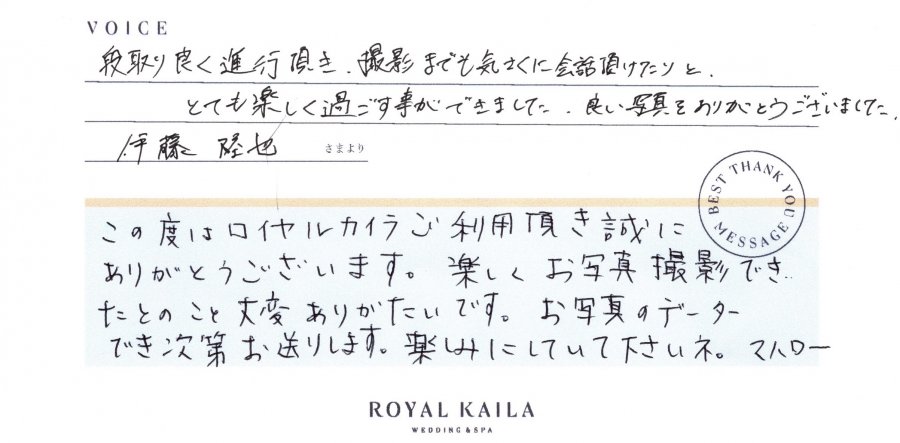 VOICE
段取り良く進行頂き、撮影までも気さくに会話頂けたりと、
とても楽しく過ごす事ができました。良い写真をありがとうございました。
伊藤 陸也 さまより
BEST THANK YOU MESSAGE
この度はロイヤルカイラご利用頂き誠に
ありがとうございます。楽しくお写真撮影でき
たとのこと大変ありがたいです。お写真のデーター
でき次第お送りします。楽しみにしていて下さいネ。マハロー
ROYAL KAILA
WEDDING & SPA